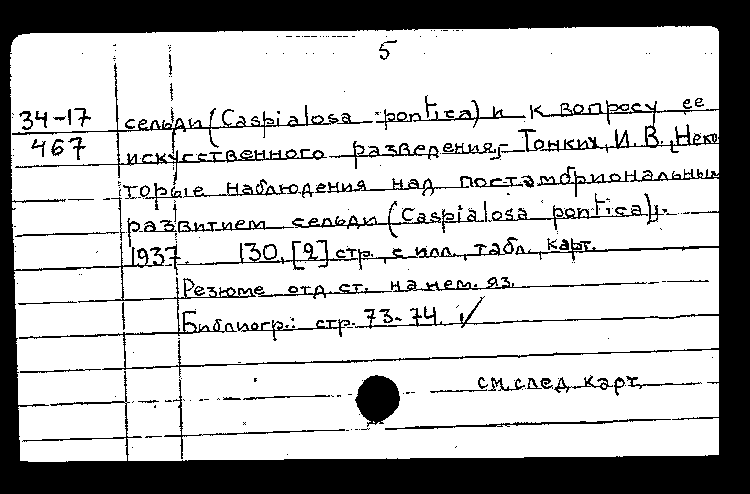 5
34-17 сельди (Caspialosa pontica) и к вопросу ее
467 искусственного разведения,- Тонких, И. В. [Неко-
торые наблюдения над постэмбриональным
развитием сельди (Caspialosa pontica)].
1937. 130, [2] стр. с илл., табл., карт.
Резюме отд. ст. на нем. яз.
Библиогр.: стр. 73-74. ✓
см. след. карт.